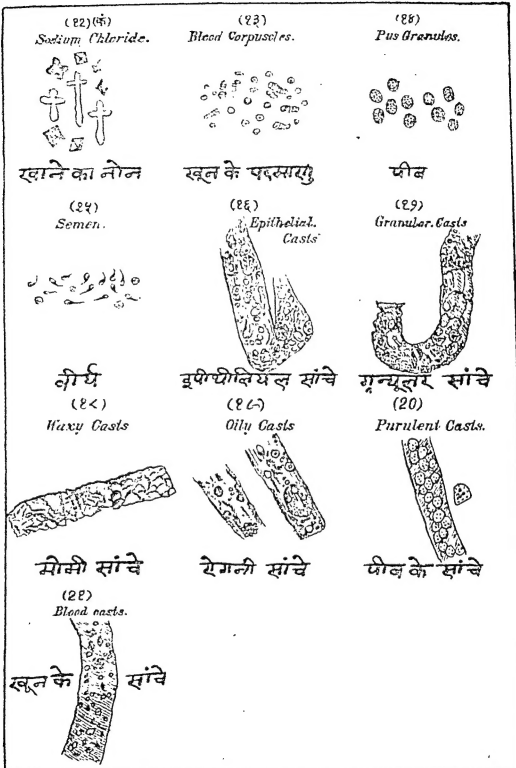 (१२)(कं)
Sodium Chloride.
खाने का नोन
(१३)
Blood Corpuscles.
खून के परमाणु
(१४)
Pus Granules.
पीब
(१५)
Semen.
वीर्य
(१६)
Epithelial.
Casts
इपीथीलियल सांचे
(१७)
Granular. Casts
ग्रन्यूलर सांचे
(१८)
Waxy Casts
मोमी सांचे
(१९)
Oily Casts
रोगनी सांचे
(20)
Purulent Casts.
पीब के सांचे
(२१)
Blood casts.
खून के सांचे